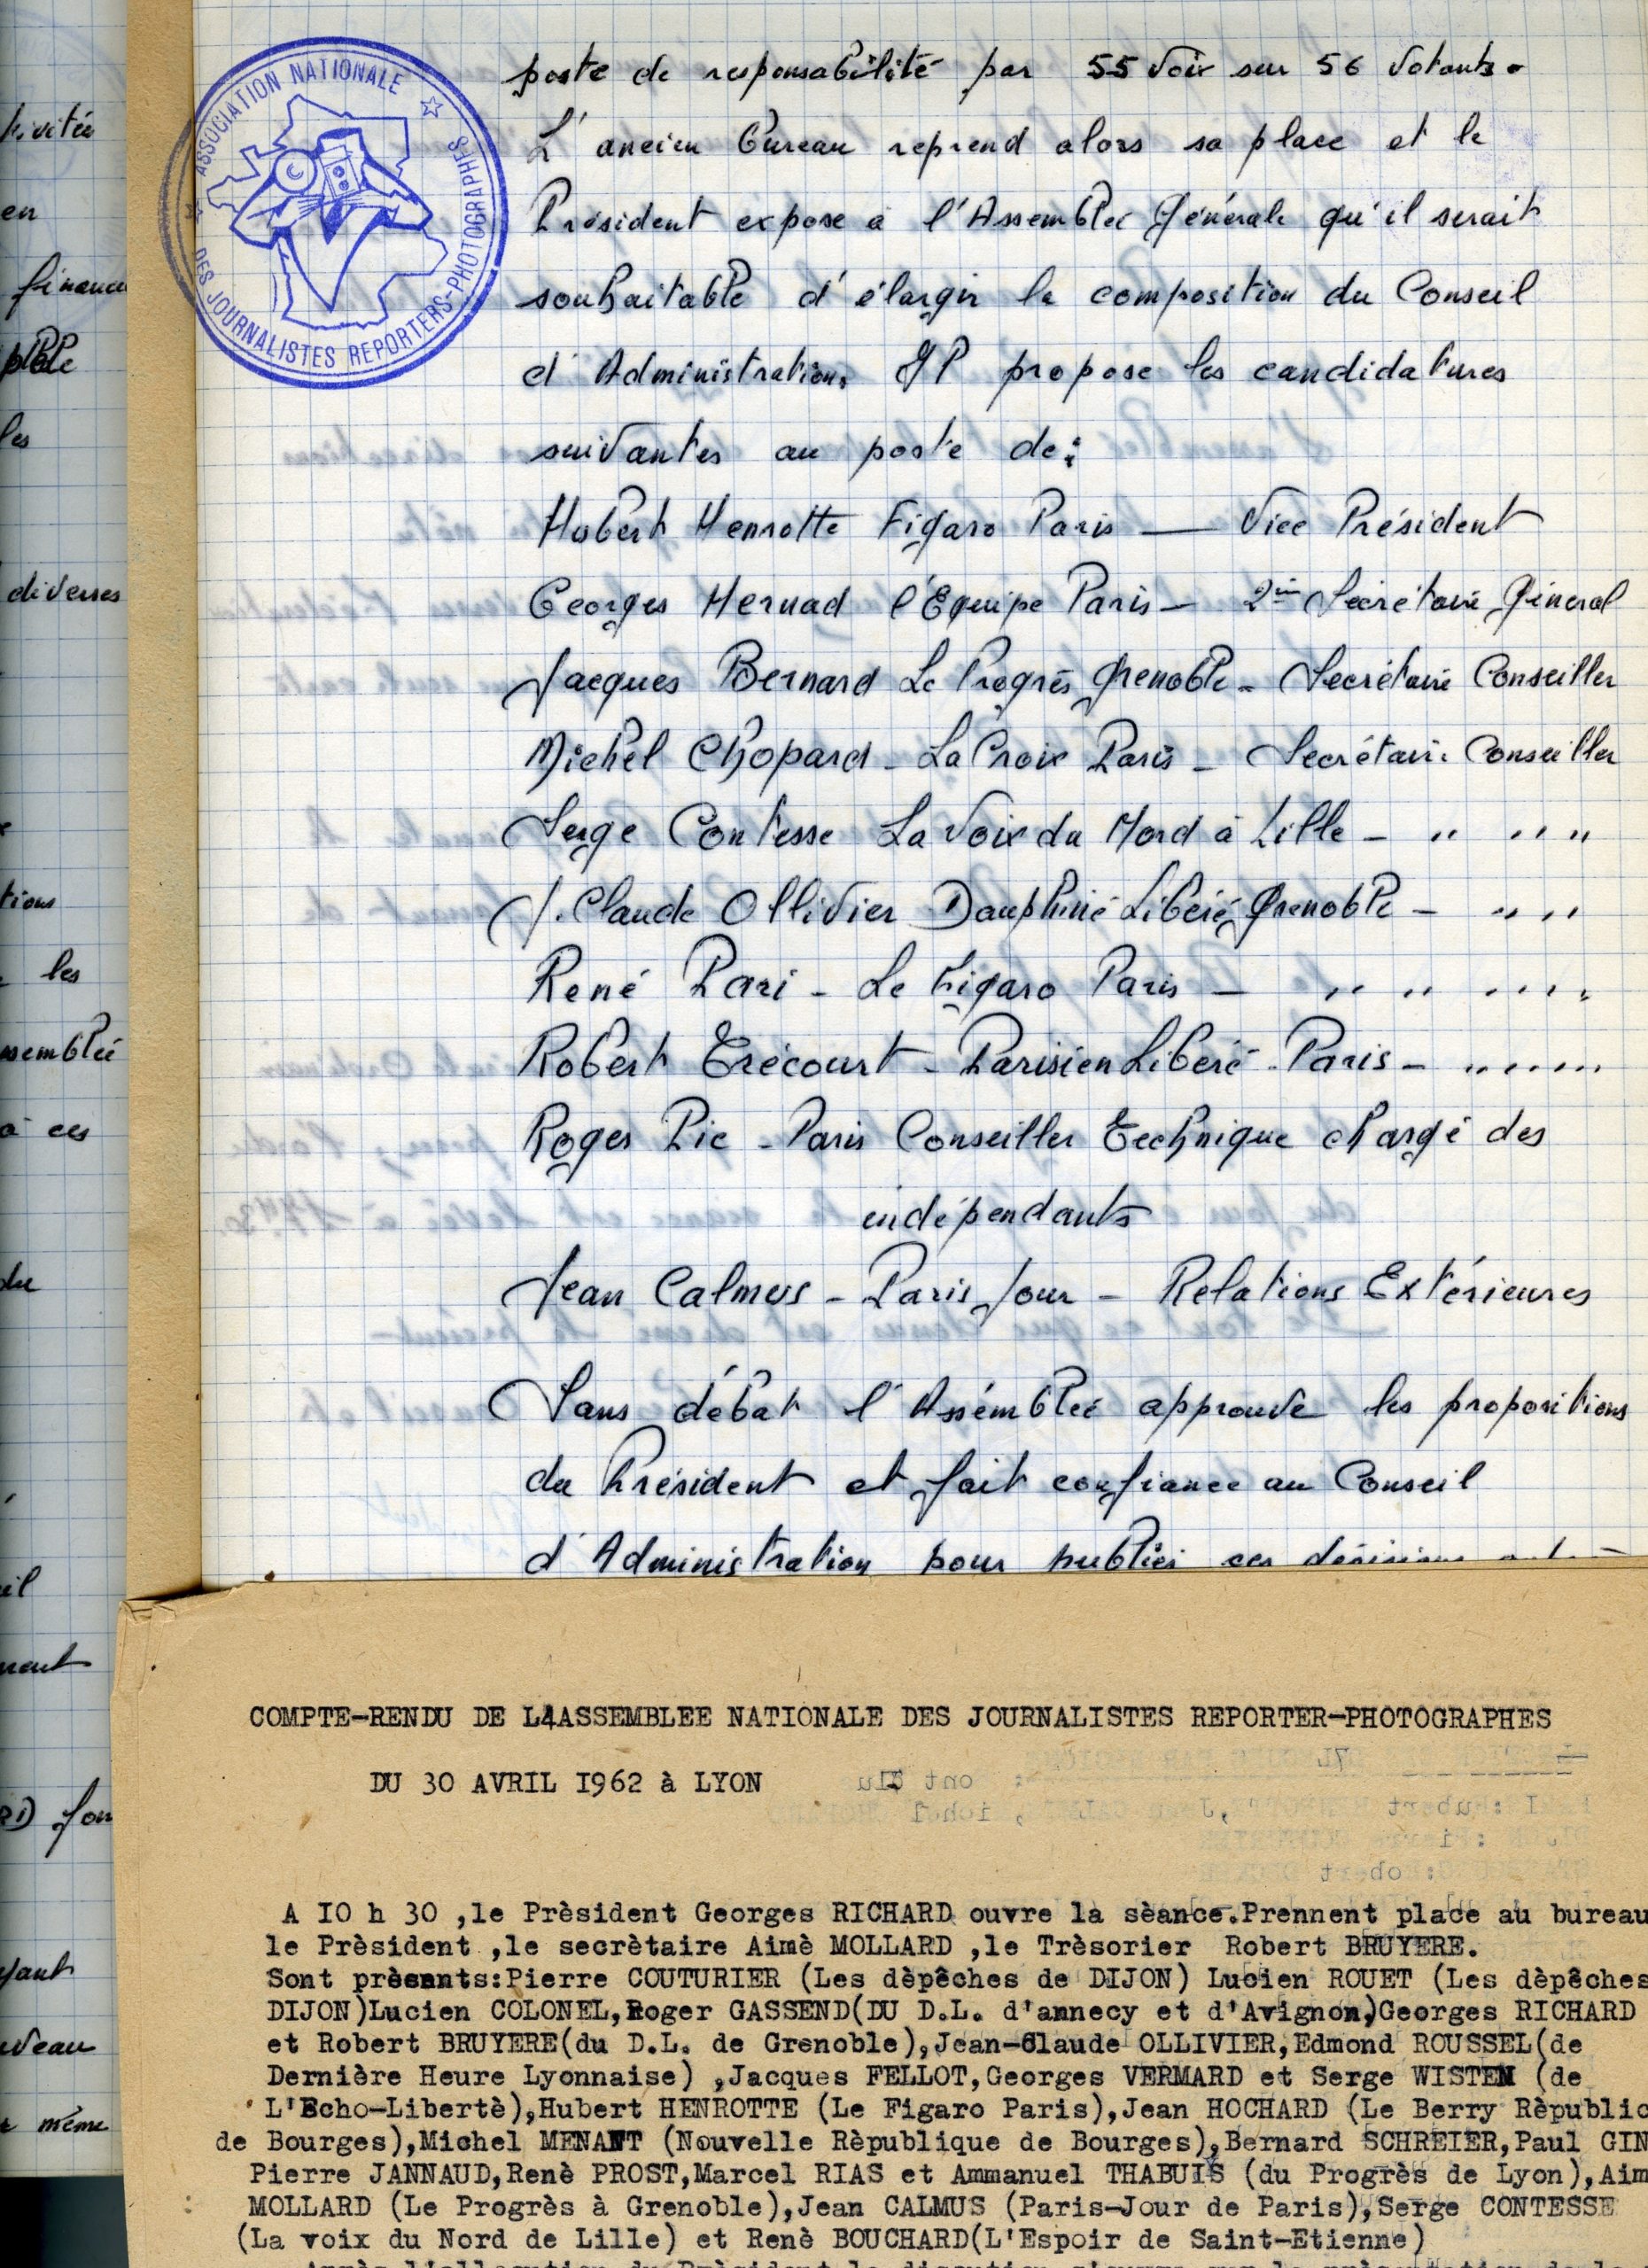 ASSOCIATION NATIONALE
DES JOURNALISTES REPORTERS-PHOTOGRAPHES
en
les
diverses
les
à ces
du
même
poste de responsabilité par 55 voix sur 56 votants.
L'ancien Bureau reprend alors sa place et le
Président expose à l'Assemblée Générale qu'il serait
souhaitable d'élargir la composition du Conseil
d'Administration. Il propose les candidatures
suivantes au poste de:
Hubert Henrotte Figaro Paris — Vice Président
Georges Hernad l'Equipe Paris — 2em Secrétaire Général
Jacques Bernard Le Progrès Grenoble - Secrétaire Conseiller
Michel Chopard - La Croix Paris - Secrétaire Conseiller
Serge Contesse La Voix du Nord à Lille - " " "
J. Claude Ollivier Dauphiné Libéré Grenoble - " "
René Pari - Le Figaro Paris - " " " "
Robert Trécourt - Parisien Libéré - Paris - " " "
Roger Pic - Paris Conseiller Technique chargé des
indépendants
Jean Calmus - Paris Jour - Relations Extérieures
Sans débat l'Assemblée approuve les propositions
du Président et fait confiance au Conseil
d'Administration pour publier ces décisions
COMPTE-RENDU DE L4ASSEMBLEE NATIONALE DES JOURNALISTES REPORTER-PHOTOGRAPHES
DU 30 AVRIL I962 à LYON
A IO h 30 ,le Prèsident Georges RICHARD ouvre la sèance.Prennent place au bureau
le Prèsident ,le secrètaire Aimè MOLLARD ,le Trèsorier Robert BRUYERE.
Sont prèsents:Pierre COUTURIER (Les dèpêches de DIJON) Lucien ROUET (Les dèpêches
DIJON)Lucien COLONEL,Roger GASSEND(DU D.L. d'annecy et d'Avignon,)Georges RICHARD
et Robert BRUYERE(du D.L. de Grenoble),Jean-Claude OLLIVIER,Edmond ROUSSEL(de
Dernière Heure Lyonnaise) ,Jacques FELLOT,Georges VERMARD et Serge WISTEN (de
L'Echo-Libertè),Hubert HENROTTE (Le Figaro Paris),Jean HOCHARD (Le Berry Rèpublic
de Bourges),Michel MENANT (Nouvelle Rèpublique de Bourges),Bernard SCHREIER,Paul GIN
Pierre JANNAUD,Renè PROST,Marcel RIAS et Ammanuel THABUIS (du Progrès de Lyon),Aim
MOLLARD (Le Progrès à Grenoble),Jean CALMUS (Paris-Jour de Paris),Serge CONTESSE
(La voix du Nord de Lille) et Renè BOUCHARD(L'Espoir de Saint-Etienne)